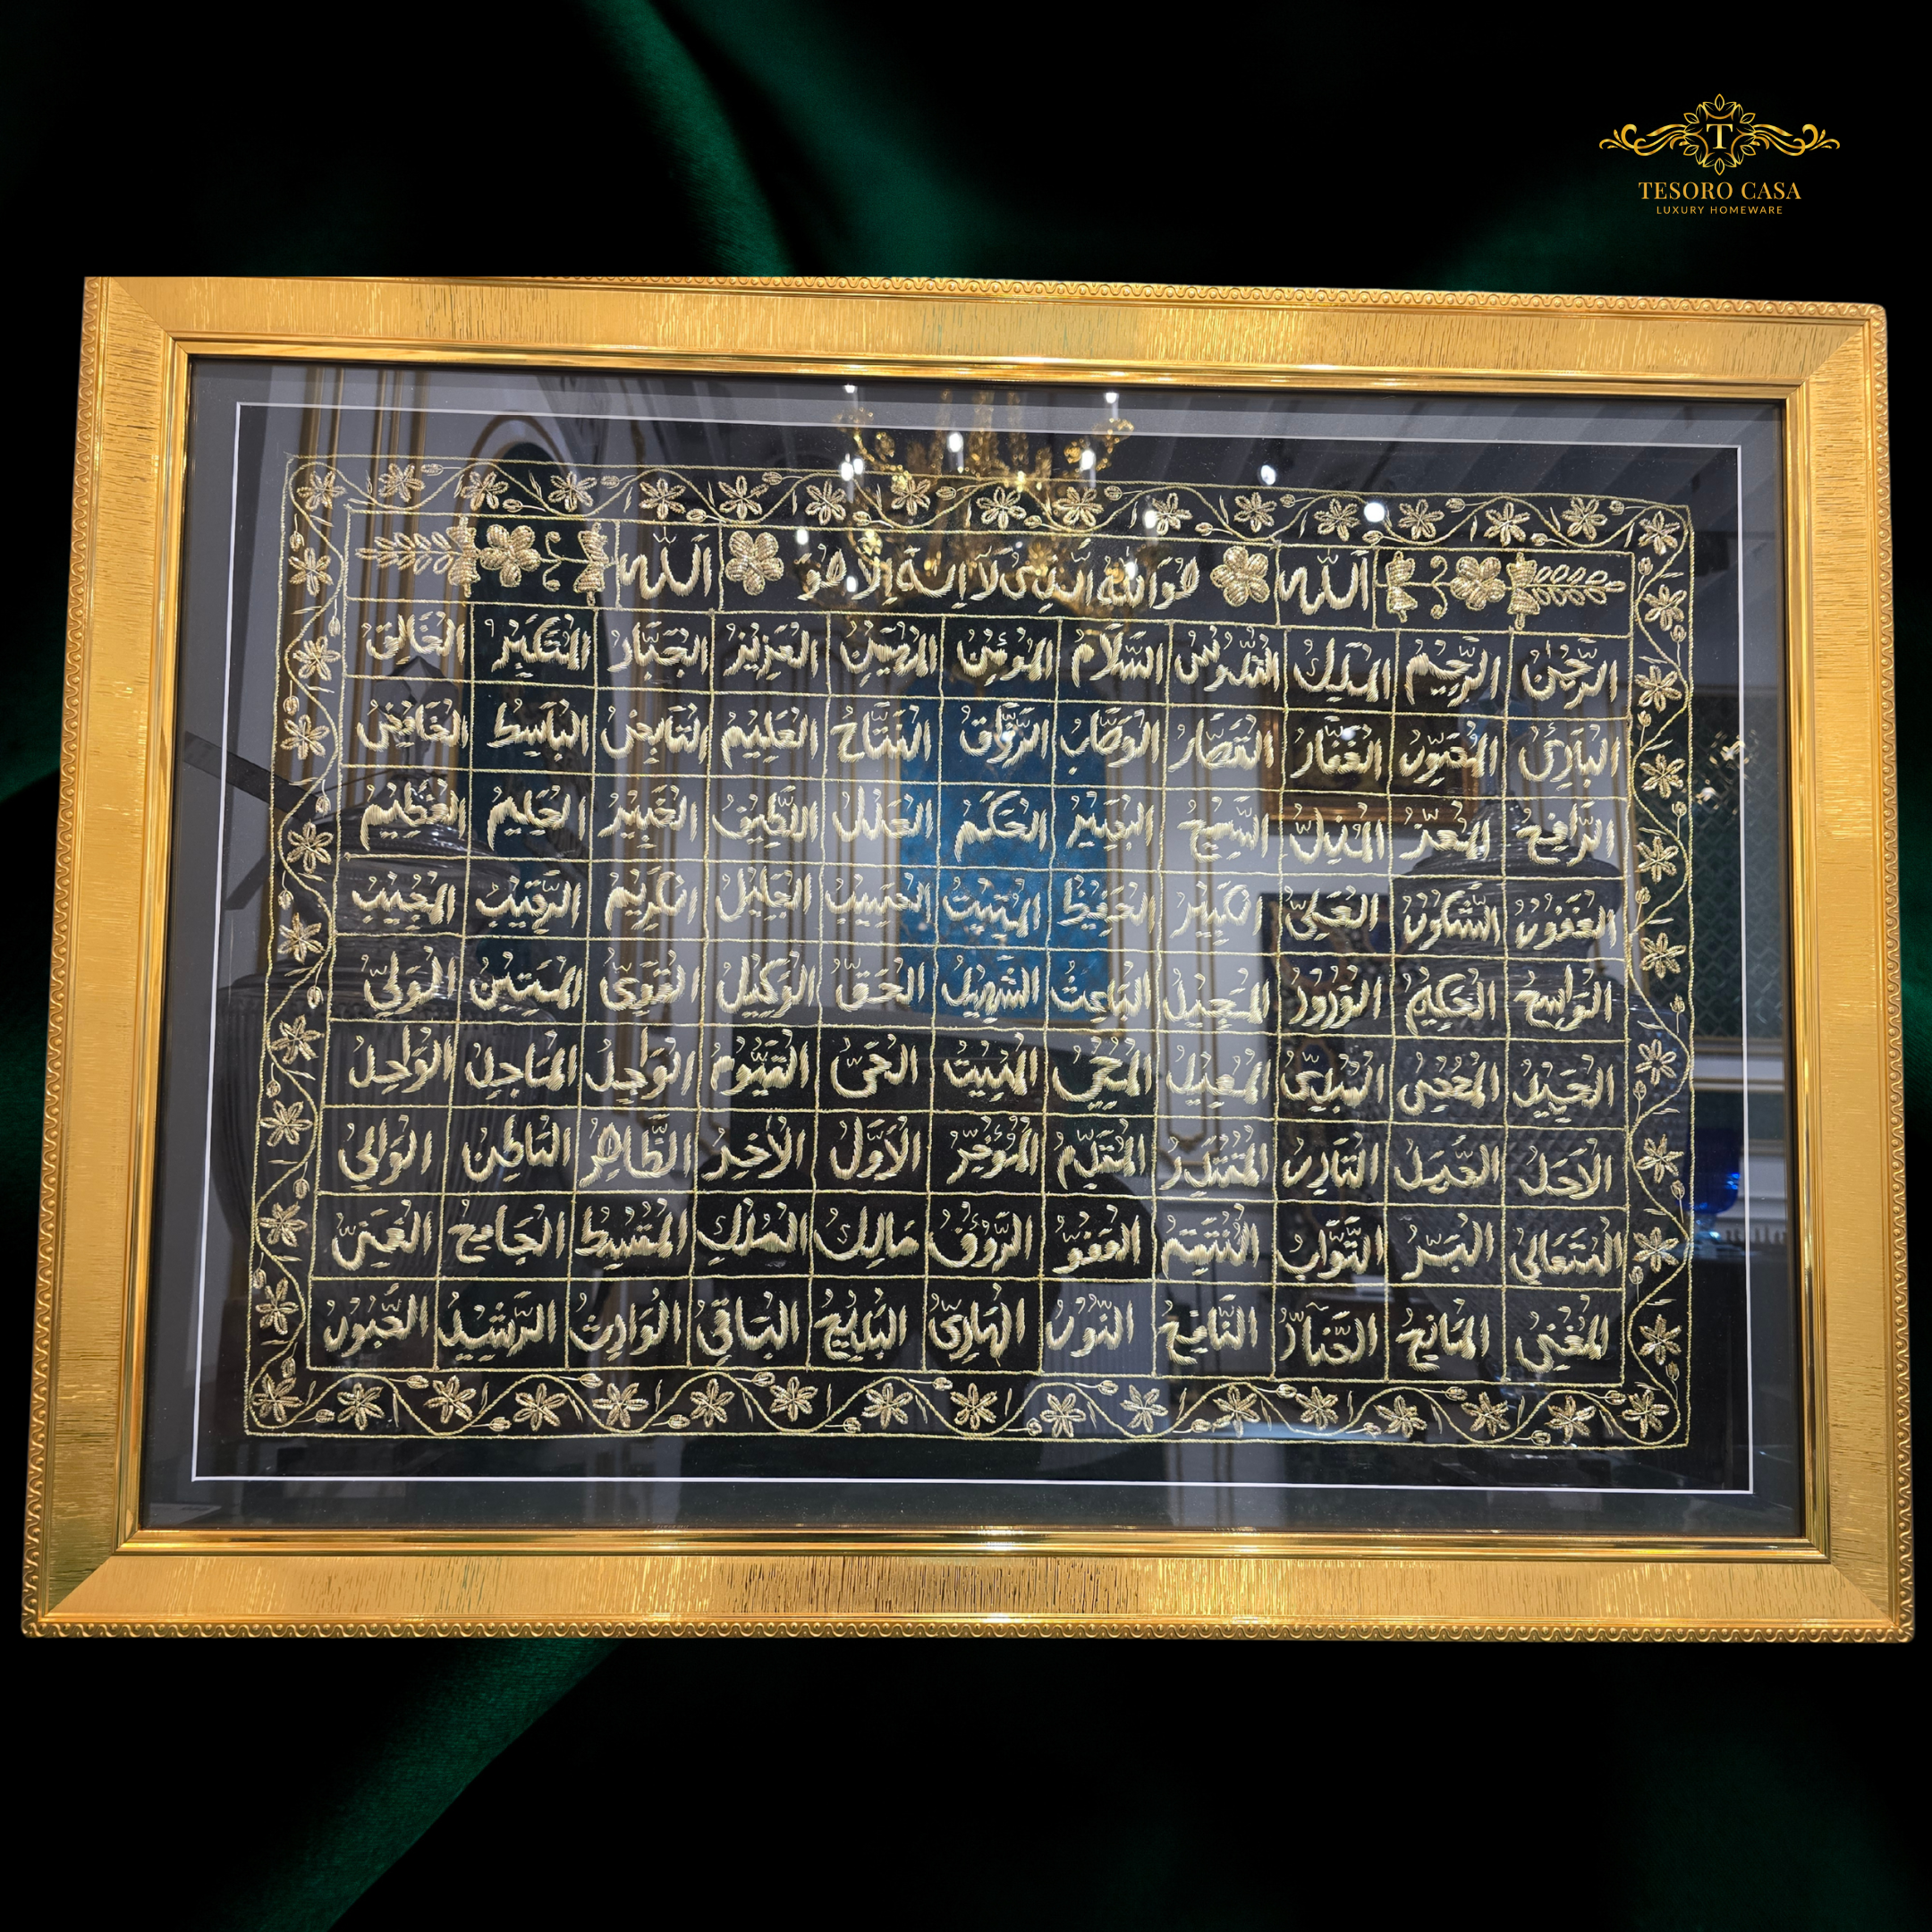 TESORO CASA
LUXURY HOMEWARE
الله هو الله الذي لا إله إلا هو الله
الرحمن الرحيم الملك القدوس السلام المؤمن المهيمن العزيز الجبار المتكبر الخالق
البارئ المصور الغفار القهار الوهاب الرزاق الفتاح العليم القابض الباسط الخافض
الرافع المعز المذل السميع البصير الحكم العدل اللطيف الخبير الحليم العظيم
الغفور الشكور العلي الكبير الحفيظ المقيت الحسيب الجليل الكريم الرقيب المجيب
الواسع الحكيم الودود المجيد الباعث الشهيد الحق الوكيل القوي المتين الولي
الحميد المحصي المبدئ المعيد المحيي المميت الحي القيوم الواجد الماجد الواحد
الأحد الصمد القادر المقتدر المقدم المؤخر الأول الآخر الظاهر الباطن الوالي
المتعالي البر التواب المنتقم العفو الرؤوف مالك الملك المقسط الجامع الغني
المغني المانع الضار النافع النور الهادي البديع الباقي الوارث الرشيد الصبور